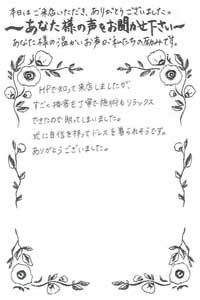 本日はご来店いただき、ありがとうございました。
〜あなた様の声をお聞かせ下さい〜
あなた様の温かいお声が私たちの励みです。
HPで知って来店しましたが、
すごく接客も丁寧で施術もリラックス
できたので眠ってしまいました。
式に自信を持ってドレスを着られそうです。
ありがとうございました。